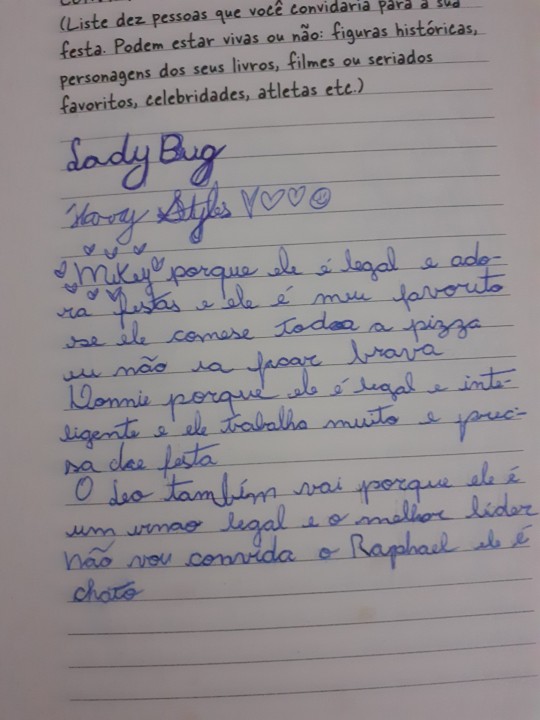 (Liste dez pessoas que você convidaria para a sua
festa. Podem estar vivas ou não: figuras históricas,
personagens dos seus livros, filmes ou seriados
favoritos, celebridades, atletas etc.)
Lady Bug
Harry Styles
Mikey porque ele é legal e ado-
ra festas e ele é meu favorito
se ele comese toda a pizza
eu não ia ficar brava
Donnie porque ele é legal e inte-
ligente e ele trabalha muito e preci-
sa de festa
O Leo também vai porque ele é
um irmao legal e o melhor líder
não vou convida o Raphael ele é
chato